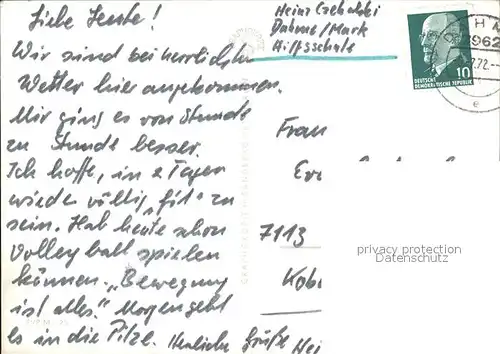 Liebe Leute!
Wir sind bei herrlichem
Wetter hier angekommen.
Mir ging es von Stunde
zu Stunde besser.
Ich hoffe, in 2 Tagen
wieder völlig „fit" zu
sein. Hab heute schon
Volleyball spielen
können. „Bewegung
ist alles." Morgen geht
es in die Pilze. Herzliche Grüße Hei
Heinz
Dahme/Mark
Hilfsschule
DEUTSCHE
DEMOKRATISCHE REPUBLIK
10
7962
72
e
Frau
7113
privacy protection
Datenschutz